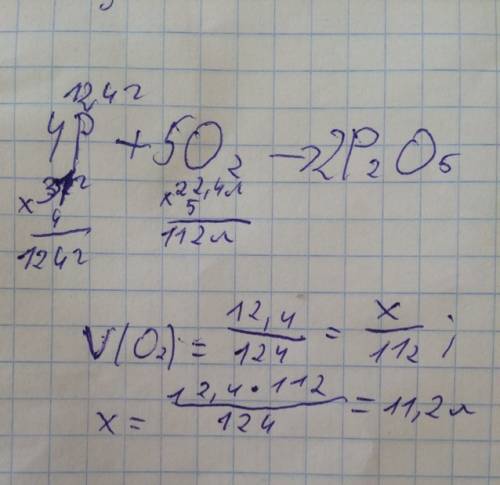 12,4г
4P + 5O₂ → 2P₂O₅
x 31г x 22,4л
4 5
124г 112л
V(O₂) = 12,4/124 = x/112 ;
x = 12,4·112/124 = 11,2л